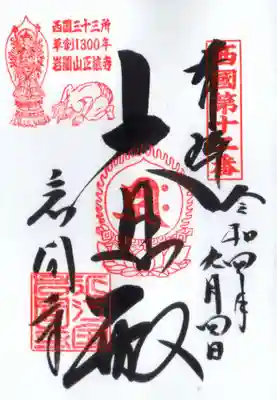 西國三十三所
草創1300年
岩間山正法寺
西國第十二番
奉拝
令和四年
九月四日
大悲殿
岩間寺